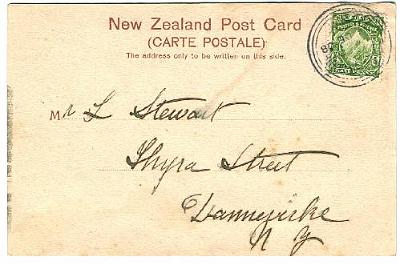 New Zealand Post Card
(CARTE POSTALE)
The address only to be written on this side.
Mr L Stewart
Thyra Street
Dannevirke
N Z